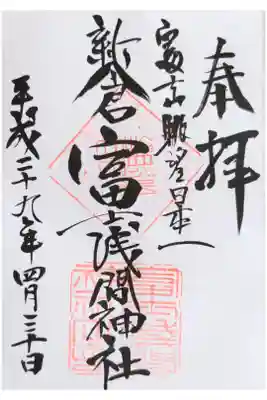 奉拝
富士眺望日本一
新倉富士浅間神社
平成二十九年四月三十日